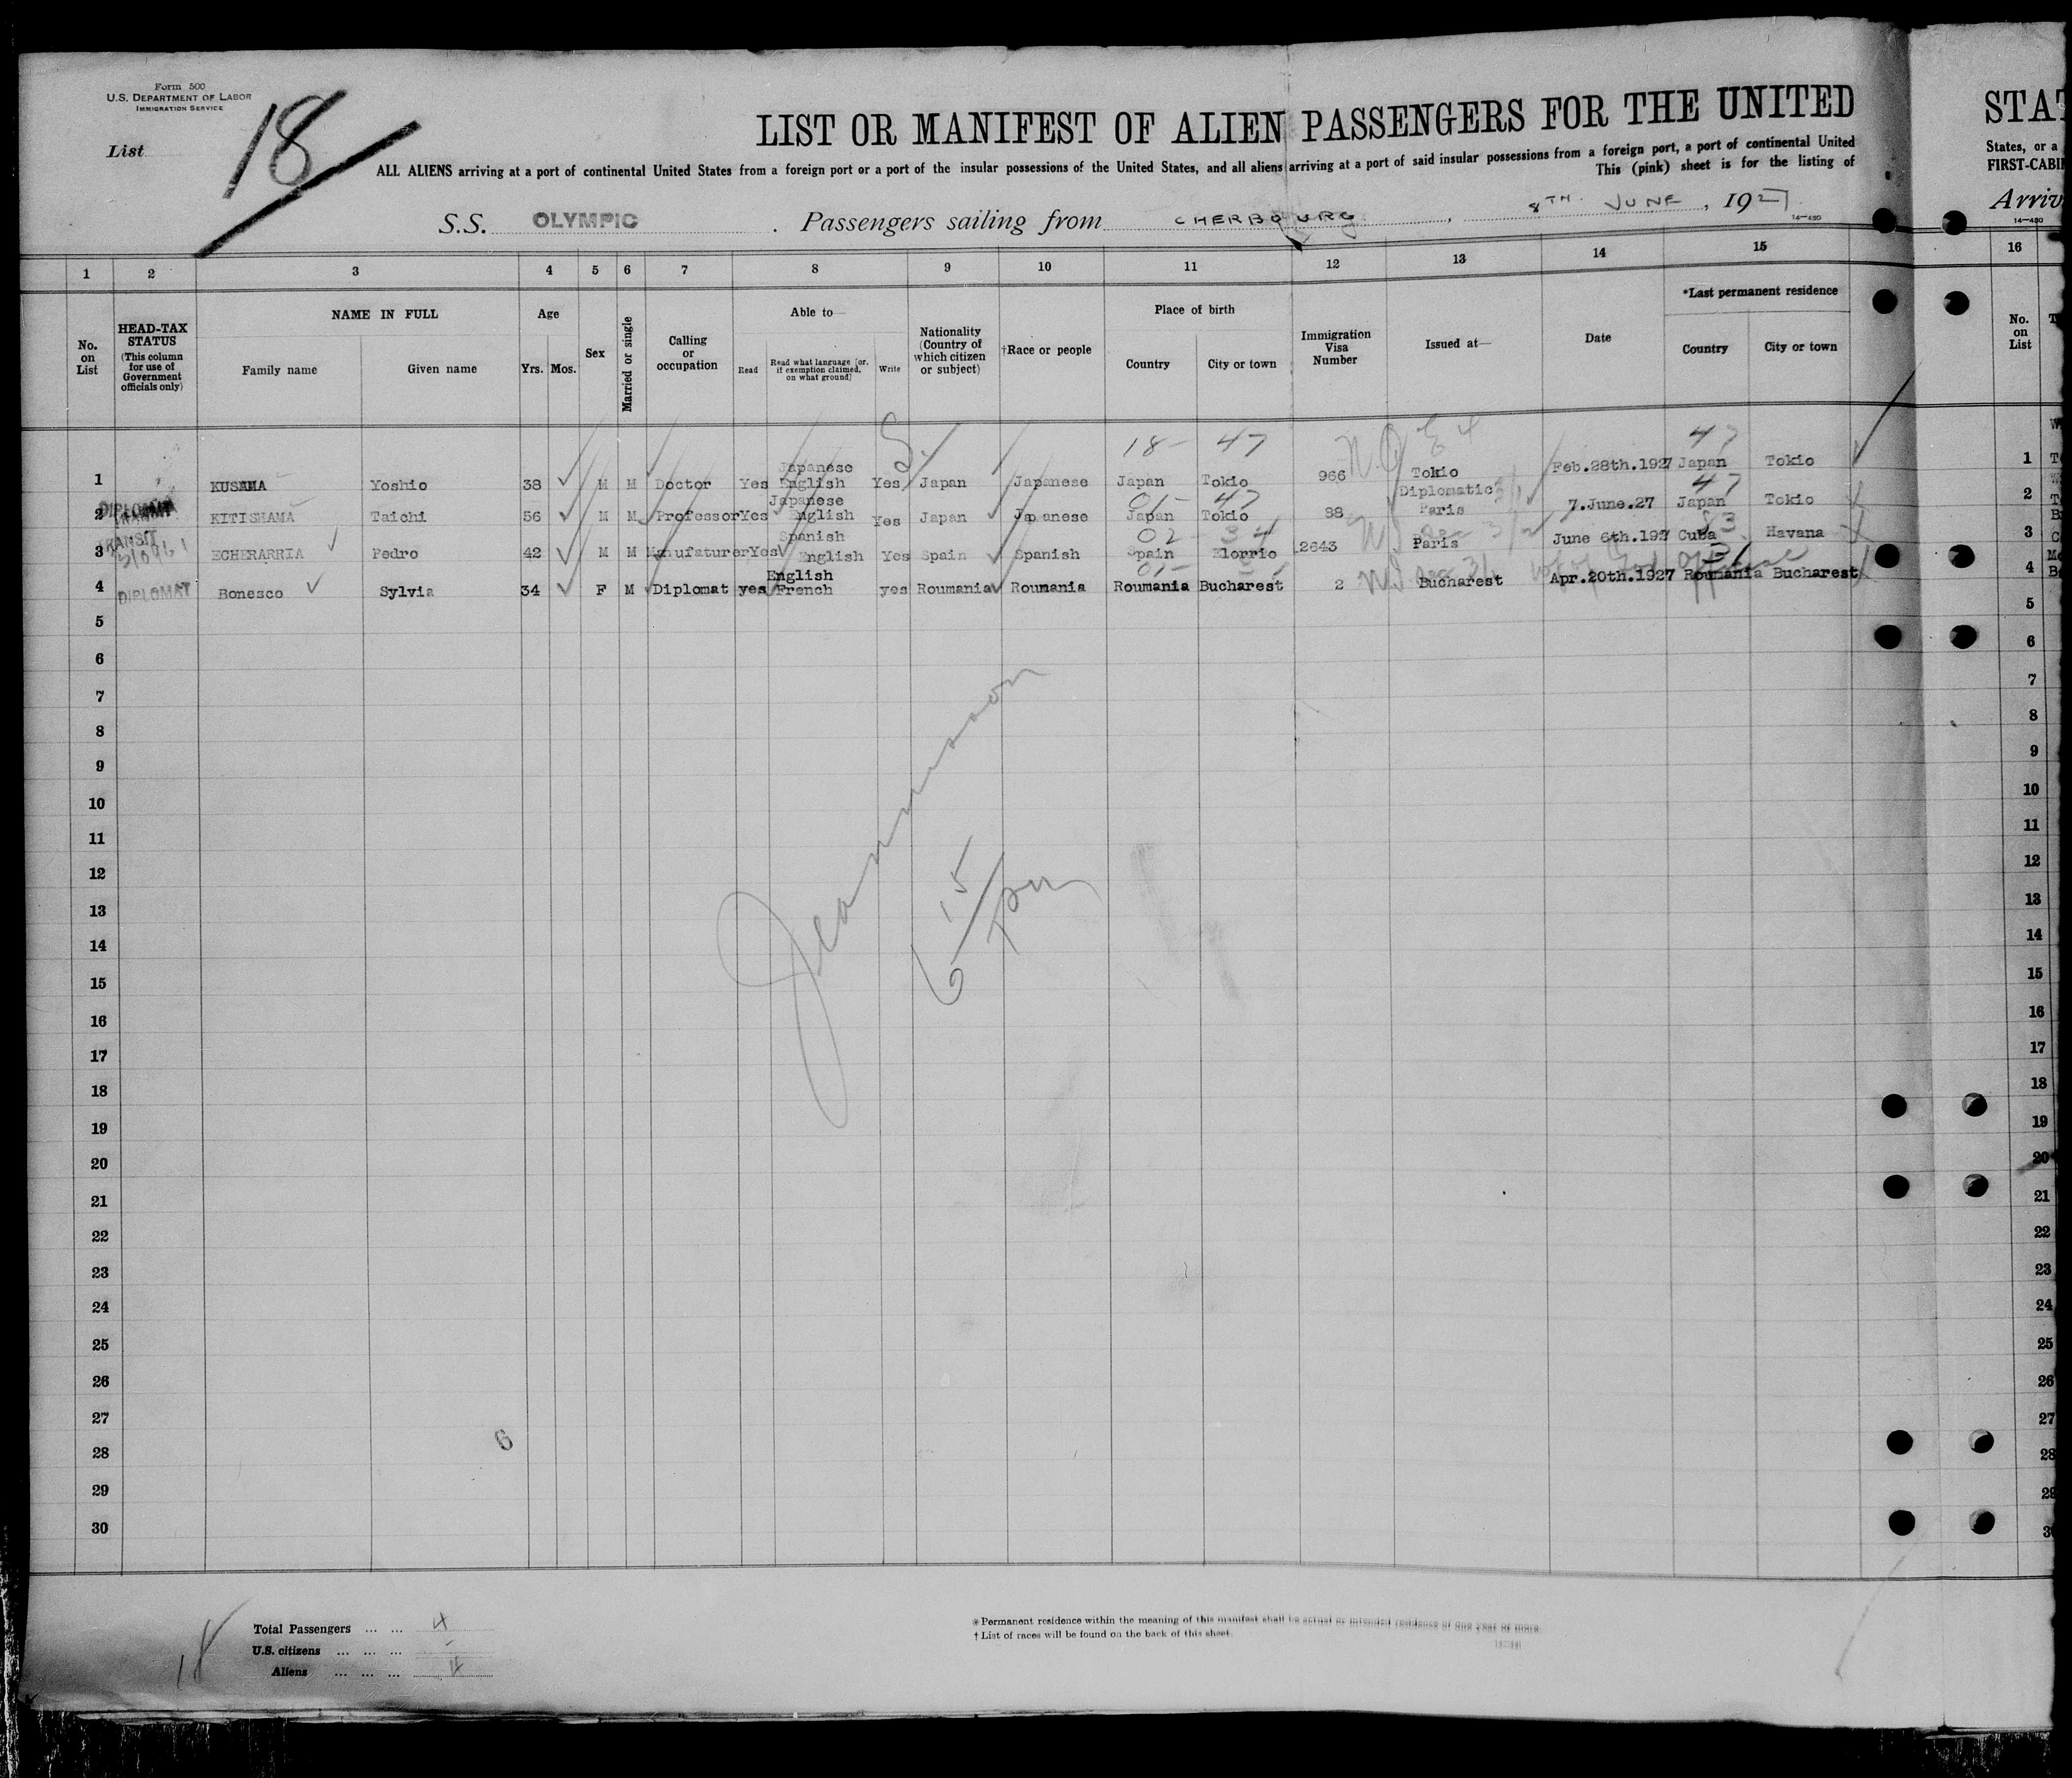 Form 500
U.S. DEPARTMENT OF LABOR
IMMIGRATION SERVICE
List 18
LIST OR MANIFEST OF ALIEN PASSENGERS FOR THE UNITED
STAT
ALL ALIENS arriving at a port of continental United States from a foreign port or a port of the insular possessions of the United States, and all aliens arriving at a port of said insular possessions from a foreign port, a port of continental United
States, or a
This (pink) sheet is for the listing of
FIRST-CABI
S.S. OLYMPIC . Passengers sailing from CHERBOURG , 8TH JUNE , 1927
Arriv
14-480
14-480
1 2 3 4 5 6 7 8 9 10 11 12 13 14 15 16
No. on List
HEAD-TAX STATUS (This column for use of Government officials only)
NAME IN FULL
Family name Given name
Age
Yrs. Mos.
Sex
Married or single
Calling or occupation
Able to—
Read Read what language [or, if exemption claimed, on what ground] Write
Nationality (Country of which citizen or subject)
†Race or people
Place of birth
Country City or town
Immigration Visa Number
Issued at—
Date
*Last permanent residence
Country City or town
No. on List
18- 47 47
1 KUSAMA Yoshio 38 M M Doctor Yes Japanese English Yes Japan Japanese Japan Tokio 966 Tokio Feb.28th.1927 Japan Tokio 1
01- 47 47
2 KITISHAMA Taichi 56 M M Professor Yes Japanese English Yes Japan Japanese Japan Tokio 88 Diplomatic Paris 7.June.27 Japan Tokio 2
TRANSIT
02 34 83
3 ECHERARRIA Pedro 42 M M Manufaturer Yes Spanish English Yes Spain Spanish Spain Elorrio 2643 Paris June 6th.1927 Cuba Havana 3
01-
4 DIPLOMAT Bonesco Sylvia 34 F M Diplomat yes English French yes Roumania Roumania Roumania Bucharest 2 Bucharest Apr.20th.1927 Roumania Bucharest 4
5 5
6 6
7 7
8 8
9 9
10 10
11 11
12 12
13 13
14 14
15 15
16 16
17 17
18 18
19 19
20 20
21 21
22 22
23 23
24 24
25 25
26 26
27 27
28 28
29 29
30
6 15/pm
6
18
Total Passengers ... ... 4
U.S. citizens ... ... ... -
Aliens ... ... ... 4
* Permanent residence within the meaning of this manifest shall be actual or intended residence of one year or more.
† List of races will be found on the back of this sheet.